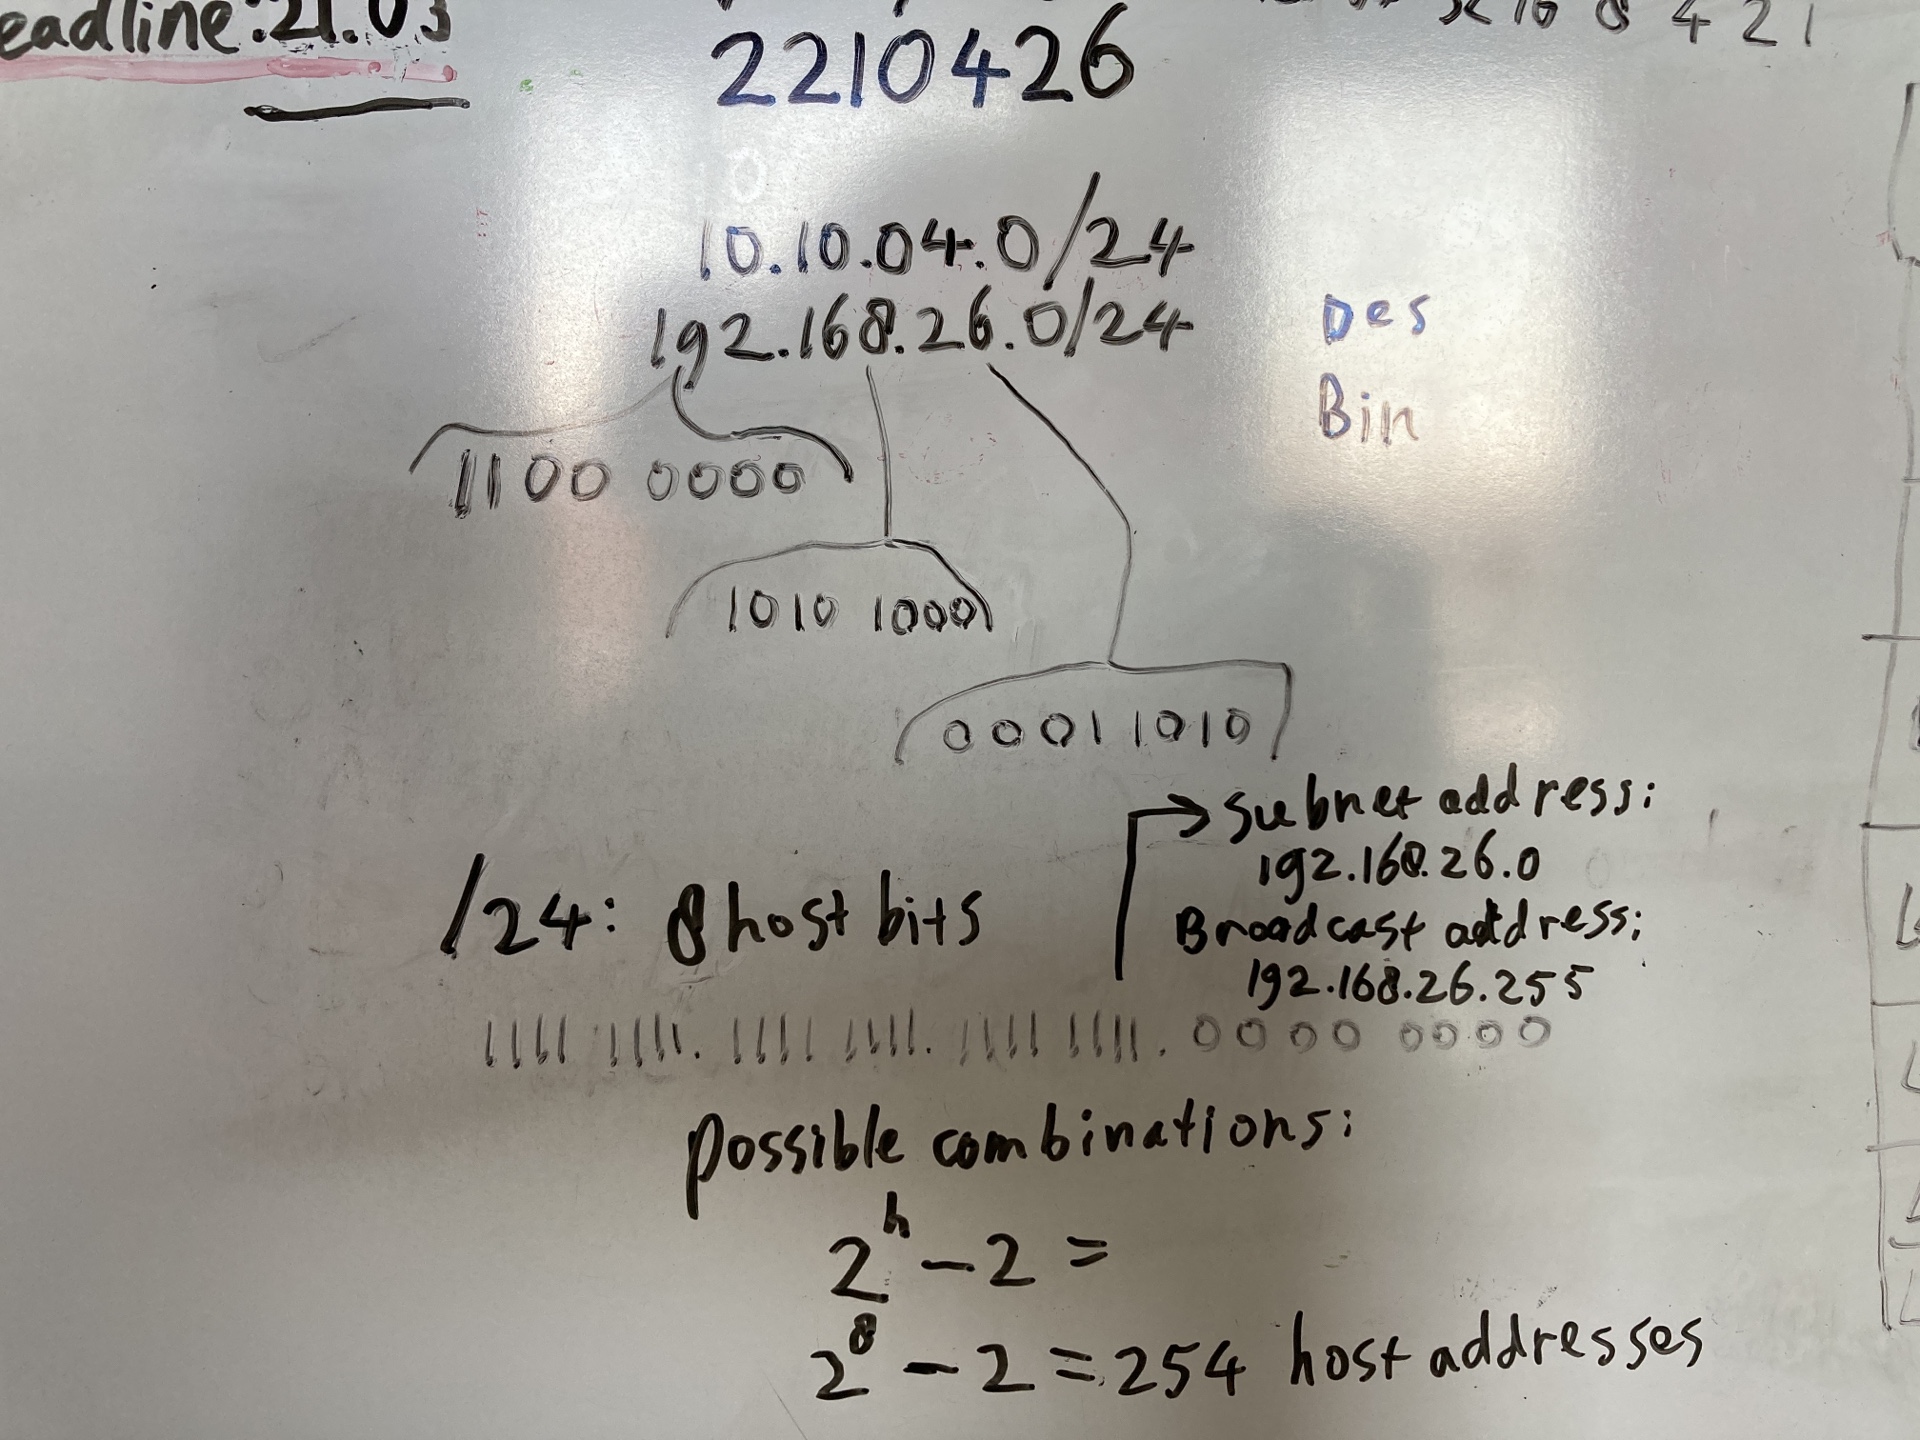 eadline: 21.03
16 8 4 2 1
2210426
10.10.04.0/24
192.168.26.0/24
Des
Bin
1100 0000
1010 1000
00011010
/24: 8 host bits
subnet address:
192.168.26.0
Broadcast address:
192.168.26.255
1111 1111. 1111 1111. 1111 1111. 0000 0000
possible combinations:
2^h - 2 =
2^8 - 2 = 254 host addresses